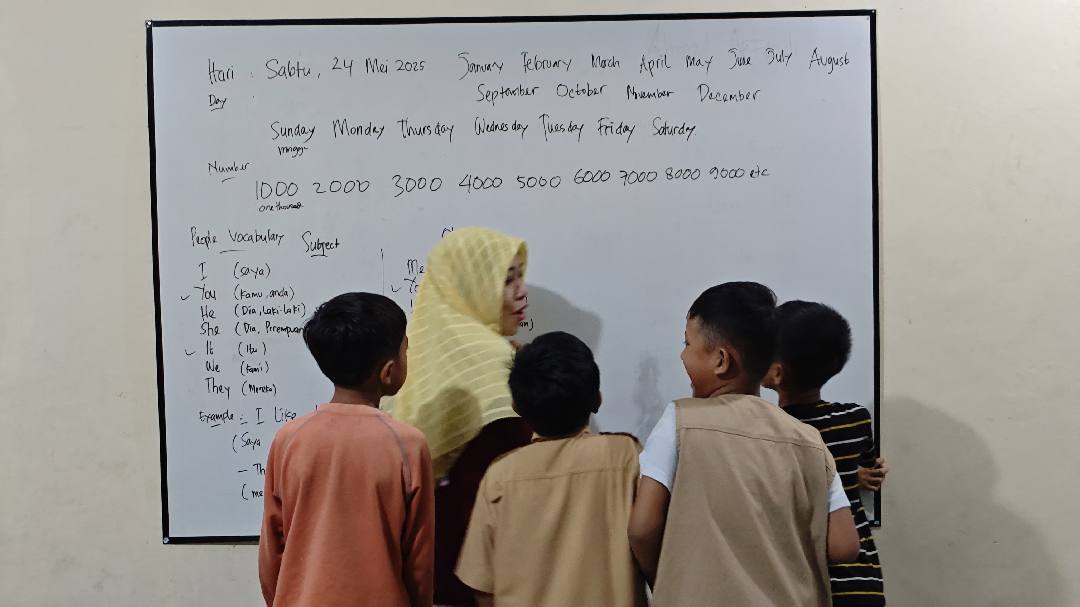 Hari : Sabtu, 24 Mei 2025 January February March April May June July August
Day September October November December
Sunday Monday Thursday Wednesday Tuesday Friday Saturday
minggu
Number
1000 2000 3000 4000 5000 6000 7000 8000 9000 etc
one thousand
People Vocabulary Subject
I (saya) Me
✓ You (kamu, anda) ✓
He (Dia, laki-laki)
She (Dia, Perempuan
✓ It (itu)
We (kami)
They (Mereka)
Example : I Like
(Saya
- Th
(me